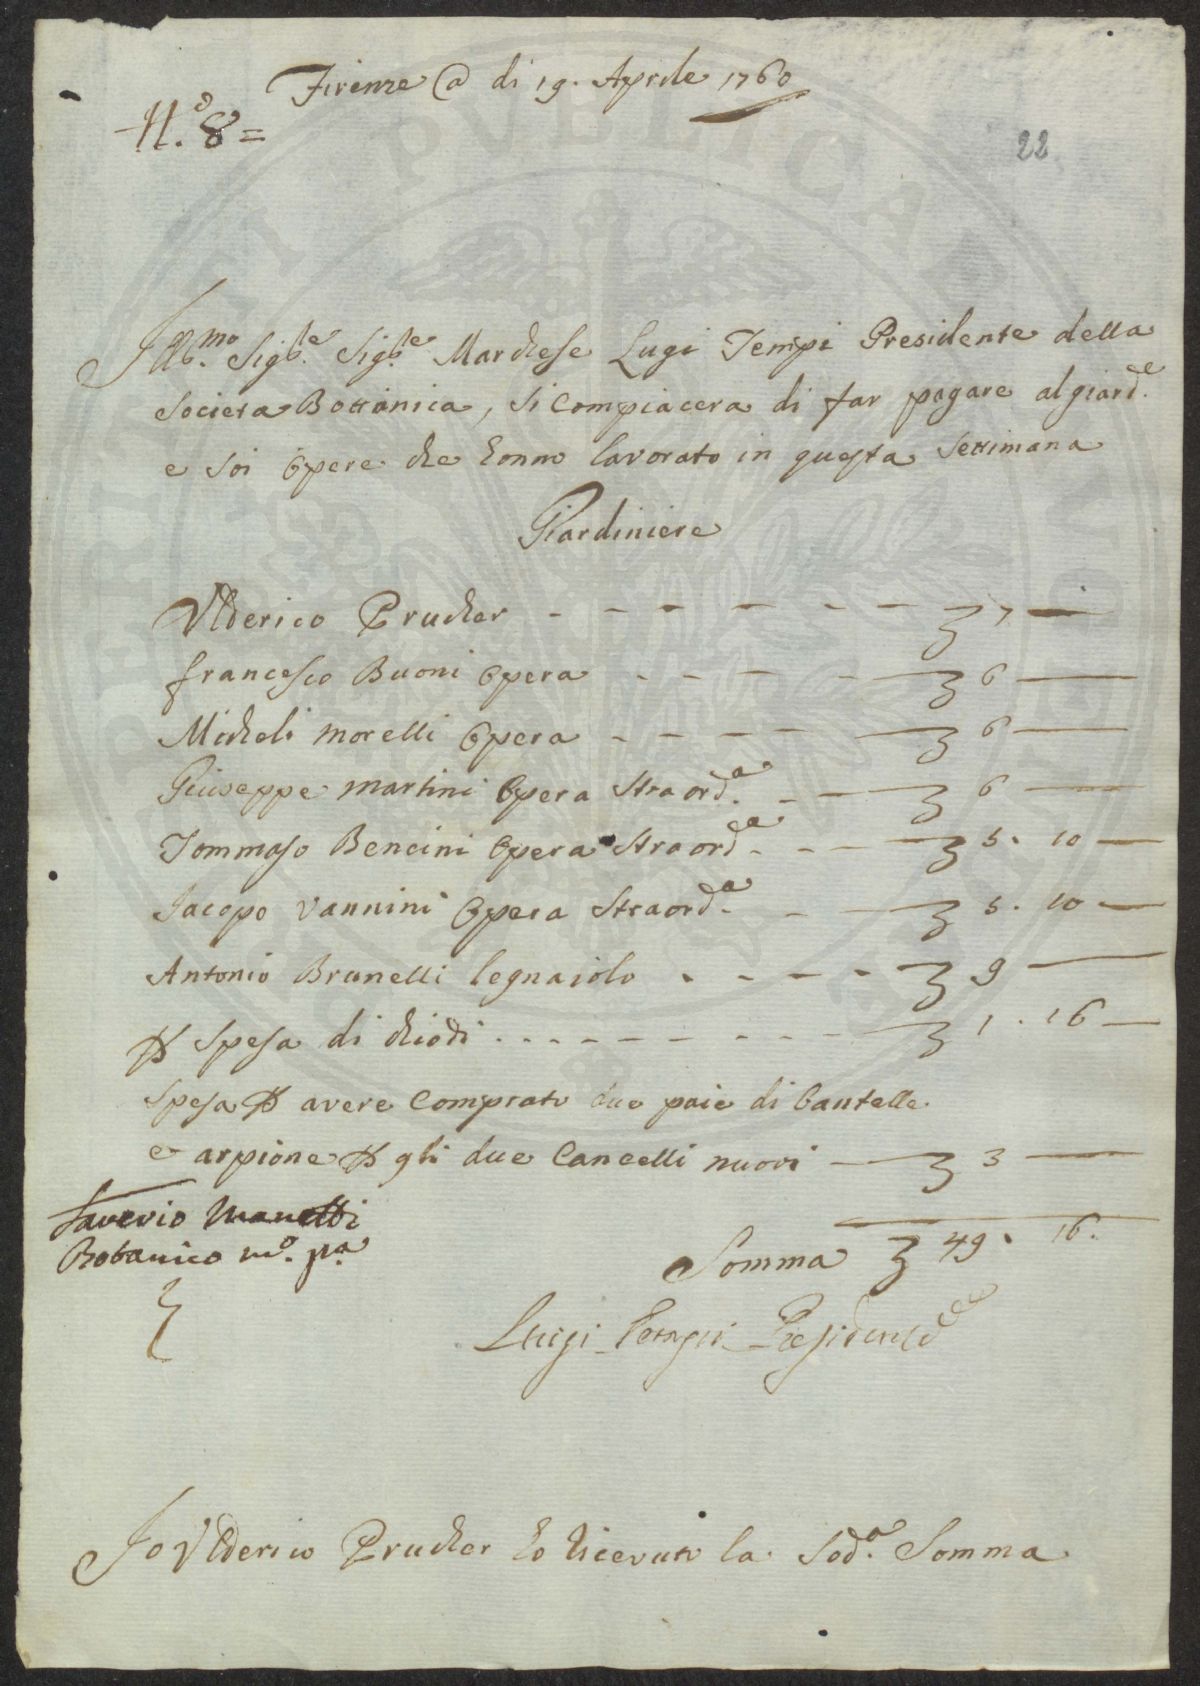 Firenze @ di 19. Aprile 1760
N.º 8=
22
Ill.mo Sig.re Sig.re Marchese Lugi Tempi Presidente della
Societa Bottanica, si compiacera di far pagare al giard.e
e soi Opere che honno lavorato in questa Settimana
Giardiniere
Ulderico Prucher - - - - - - 7 —
francesco Buoni Opera - - - - 6 —
Micheli Morelli Opera - - - - 6 —
Giuseppe Martini Opera Straord.a - - 6 —
Tommaso Bencini Opera Straord.a - - - 5. 10 —
Jacopo Vannini Opera Straord.a - - 5. 10 —
Antonio Brunelli legnaiolo - - - - 9 —
Spesa di chiodi - - - - - - - 1. 16 —
Spesa avere Comprato due paie di bantelle
e arpione gli due Cancelli nuovi — 3 —
Saverio Manetti
Botanico m.º p.a
Somma 49. 16.
Luigi Tempi Presidente
Io Ulderico Prucher ho ricevuto la Sod.a Somma
PVBLICA